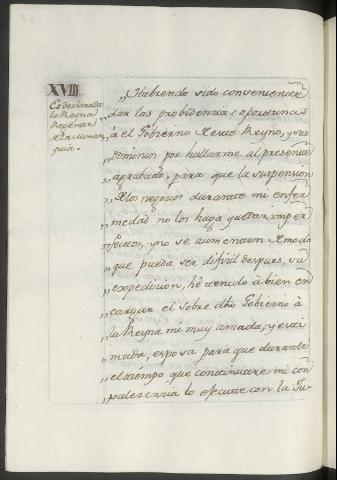 XVIII.
Es declarada
la Reyna
Regenta
de la Monar
quia.
„Habiendo sido conveniente
dar las probidenzias oportunas
„à el Gobierno de este Reyno, y sus
„Dominios por hallarme al presente
„agrabado, para que la suspension
„de los negocios durante mi enfer
„medad no los haga quedar imper
„fectos, y no se aumenten de modo
„que pueda ser dificil despues, su
„expedicion, hè tenido à bien en
„cargar el sobre dho Gobierno à
„la Reyna mi muy amada, y esti
„mada, esposa para que durante
„el tiempo que continuare mi con
„valezenzia lo execute con la Ju-